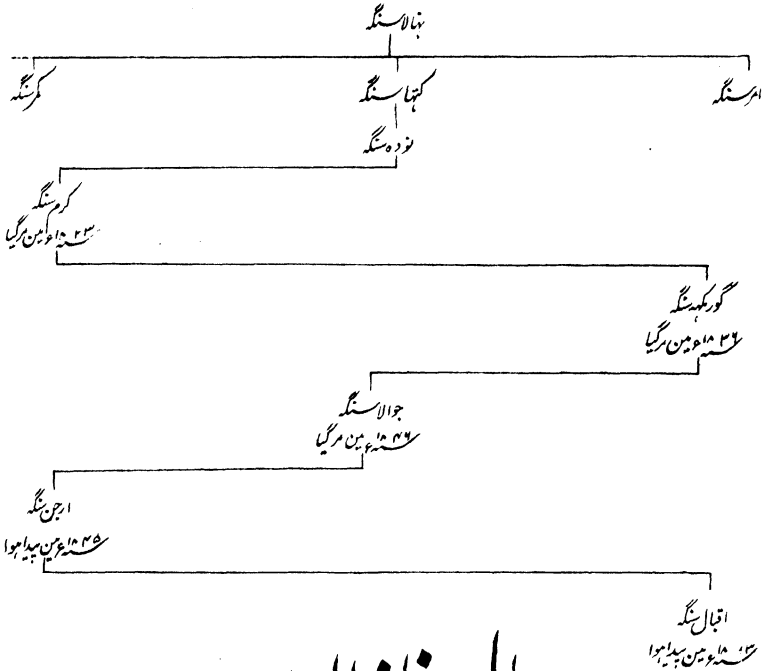 بہالا سنگہ
امر سنگہ کنہا سنگہ کمر سنگہ
نودہ سنگہ
کرم سنگہ
سنہ ۱۸۲۳ء مین مرگیا
گورمکہہ سنگہ
سنہ ۱۸۳۶ء مین مرگیا
جوالا سنگہ
سنہ ۱۸۴۶ء مین مرگیا
ارجن سنگہ
سنہ ۱۸۴۵ء مین پیدا ہوا
اقبال سنگہ
مین پیدا ہوا